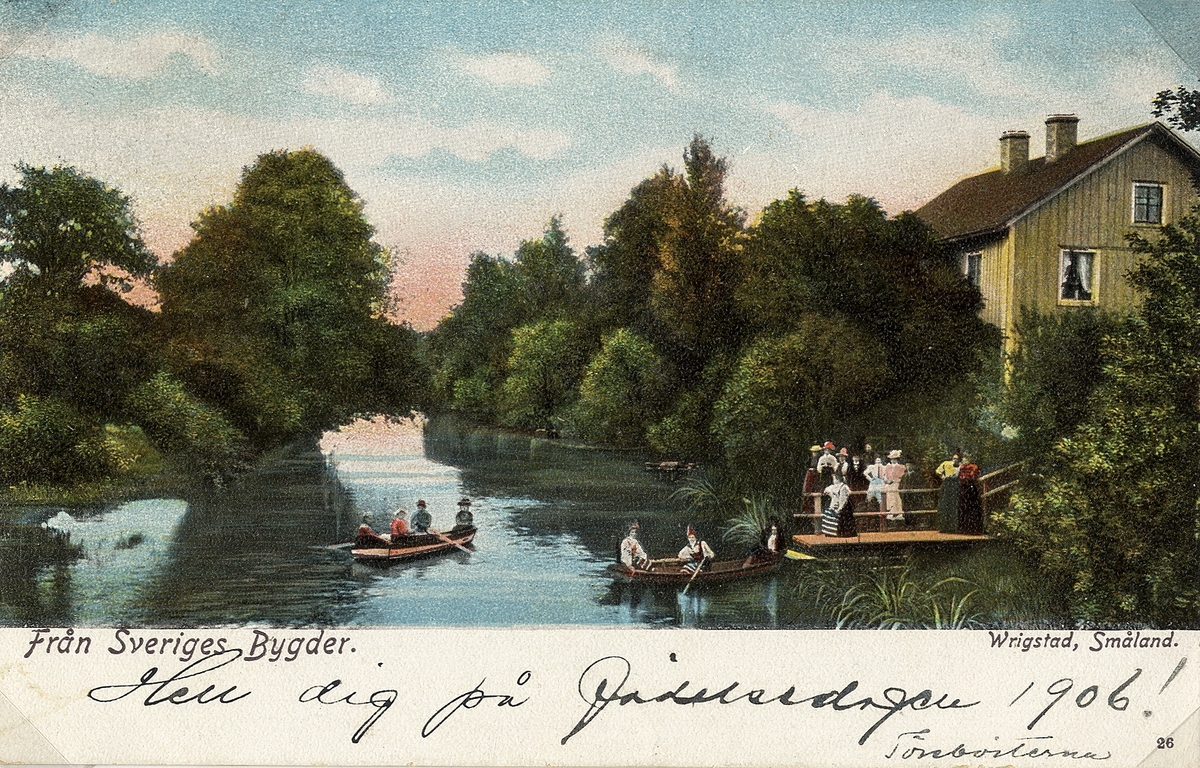 Från Sveriges Bygder.
Wrigstad, Småland.
Hell dig på födelsedagen 1906!
26